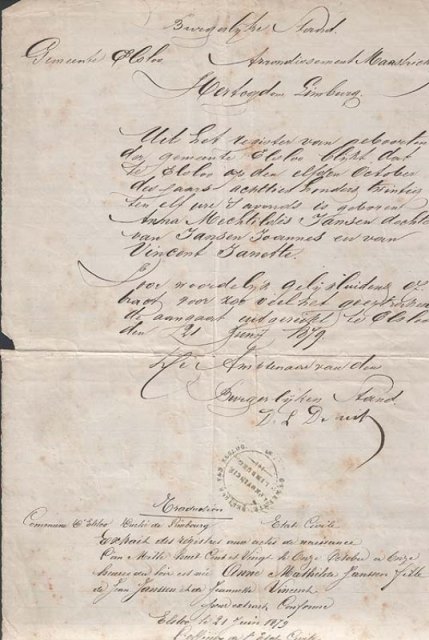 Burgerlijke Stand.
Gemeente Elsloo Arrondissement Maastricht
Hertogdom Limburg.
Uit het register van geboorten
der gemeente Elsloo blijkt dat
te Elsloo op den elfden October
des jaars achttien honderd twintig
ten elf ure 's avonds is geboren
Anna Mechtildis Jansen dochter
van Jansen Joannes en van
Vincent Janette.
Voor woordelijk gelijkluidend
voor zoo veel het geextraheer
de aangaat uitgereikt te Elsloo
den 21 Junij 1879
De Ambtenaar van den
Burgerlijken Stand.
Traduction
Commune d'Elsloo Duché de Limbourg Etat Civile
Extrait des registres aux actes de naissance
L'an Mille huit Cent et Vingt le Onze Octobre a Onze
heures du soir est née Anne Mathilde Janssen fille
de Jean Janssen et de Jeannette Vincent
pour extrait Conforme
Elsloo le 21 Juin 1879
l'officier de l'Etat Civile